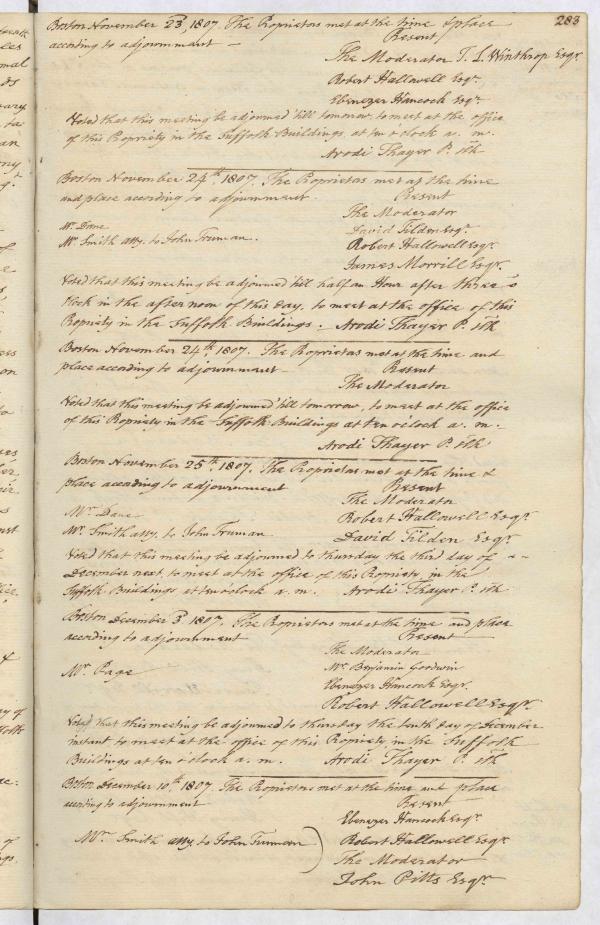 283
Boston November 23d, 1807. The Proprietors met at the time & place
according to adjournment —
Present
The Moderator T. L. Winthrop Esqr.
Robert Hallowell Esqr.
Ebenezer Hancock Esqr.
Voted that this meeting be adjourned 'till tomorrow, to meet at the office
of this Propriety in the Suffolk Buildings at ten o clock a. m.
Arodi Thayer P. Clk
Boston November 24th, 1807. The Proprietors met at the time
and place according to adjournment.
Present
The Moderator
Mr. Dane
David Tilden Esqr.
Mr. Smith atty. to John Truman.
Robert Hallowell Esqr.
James Morrill Esqr.
Voted that this meeting be adjourned till half an Hour after three o
Clock in the after noon of this day, to meet at the office of this
Propriety in the Suffolk Buildings. Arodi Thayer P. Clk
Boston November 24th, 1807. The Proprietors met at the time and
place according to adjournment —
Present
The Moderator
Voted that this meeting be adjourned 'till tomorrow, to meet at the office
of this Propriety in the Suffolk Buildings at ten o clock a. m.
Arodi Thayer P. Clk
Boston November 25th, 1807. The Proprietors met at the time &
place according to adjournment
Present
The Moderator
Mr. Dane
Robert Hallowell Esqr.
Mr. Smith atty. to John Truman
David Tilden Esqr.
Voted that this meeting be adjourned to thursday the third day of
December next, to meet at the office of this Propriety, in the
Suffolk Buildings at ten o clock a. m. Arodi Thayer P. Clk
Boston December 3d, 1807. The Proprietors met at the time and place
according to adjournment
Present
The Moderator
Mr. Benjamin Goodwin
Mr. Page
Ebenezer Hancock Esqr.
Robert Hallowell Esqr.
Voted that this meeting be adjourned to thursday the tenth day of December
instant to meet at the office of this Propriety, in the Suffolk
Buildings at ten o clock a. m. Arodi Thayer P. Clk
Boston December 10th, 1807. The Proprietors met at the time and place
according to adjournment
Present
Ebenezer Hancock Esqr.
Mr. Smith atty. to John Truman
Robert Hallowell Esqr.
The Moderator
John Pitts Esqr.